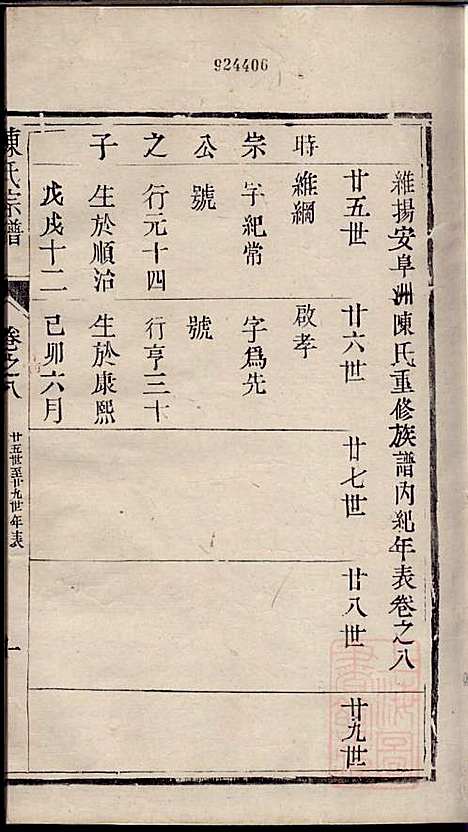 924406
維揚安阜洲陳氏重修族譜內紀年表卷之八
廿五世 廿六世 廿七世 廿八世 廿九世
時 維綱 啟孝
崇 字紀常 字爲先
公 號 號
之 行元十四 行亨三十
子 生於順治 生於康熙
戊戌十二 己卯六月
陳氏宗譜 卷之八 廿五世至廿九世年表 一